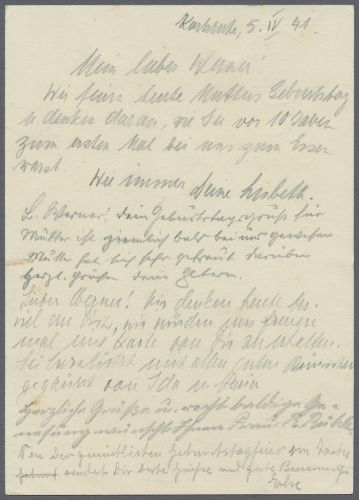 Karlsruhe, 5. IV 41
Mein lieber Werner!
Wir feiern heute Mutters Geburtstag
u. denken daran, wie Du vor 10 Jahren
zum ersten Mal bei uns zum Essen
warst.
Wie immer Deine Lisbeth.
L. Werner! Dein Geburtstagsgruß für
Mutter ist ziemlich bald bei uns gewesen.
Mutter hat sich sehr gefreut darüber
Herzl. Grüße Dein
Lieber Werner! Wir denken heute
viel an Dich, wir würden uns freuen
mal eine Karte von Dir zu erhalten.
Sei herzlichst mit allen guten Wünschen
gegrüsst von Ida u.
Herzliche Grüße u. recht baldige Ge-
nesung wünscht Ihnen Frau
Von der gemütlichen Geburtstagsfeier von Tantes
Geburt sendet Dir beste Grüße und gute Besserung